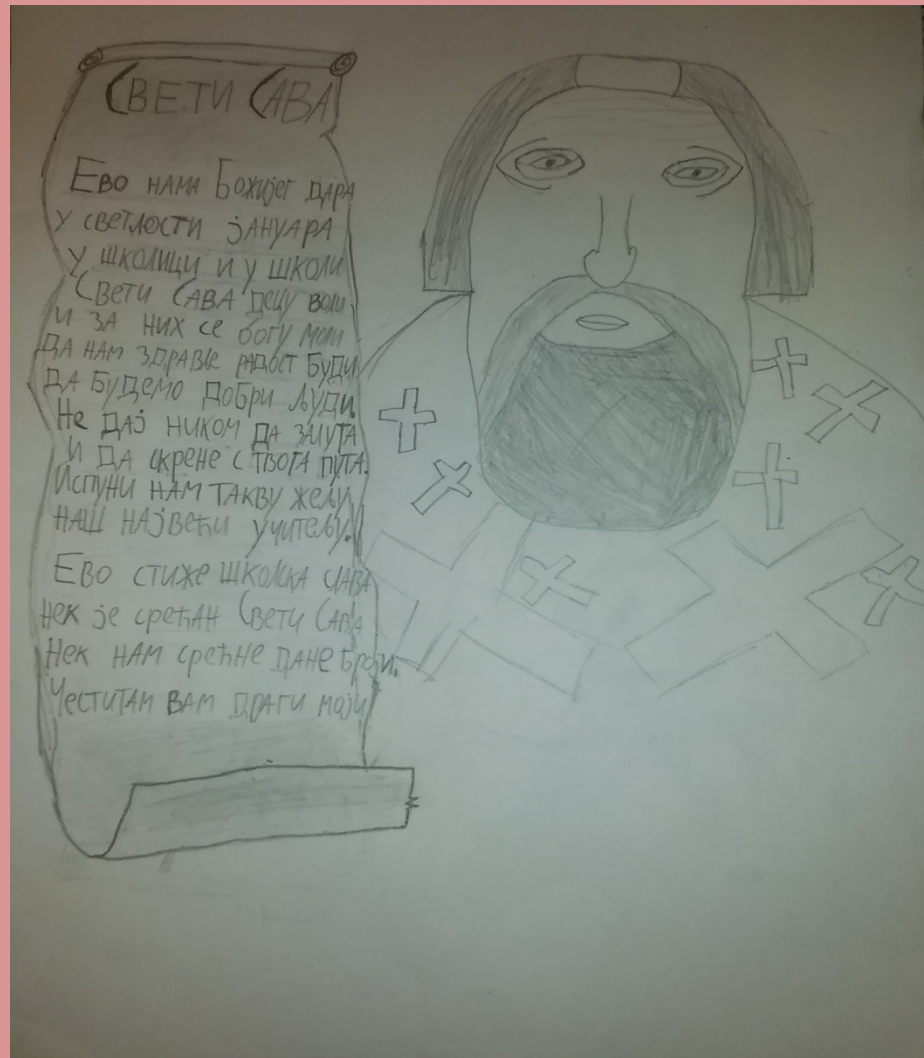 СВЕТИ САВА
Ево нама Божијег дара
у светлости јануара
у школици и у школи
Свети Сава децу воли
и за них се богу моли
да нам здравље радост буди
да будемо добри људи.
Не дај ником да залута
и да скрене с твога пута.
Испуни нам такву жељу
наш највећи учитељу.
Ево стиже школска слава
нек је срећан Свети Сава
Нек нам срећне дане броји.
Честитам вам драги моји